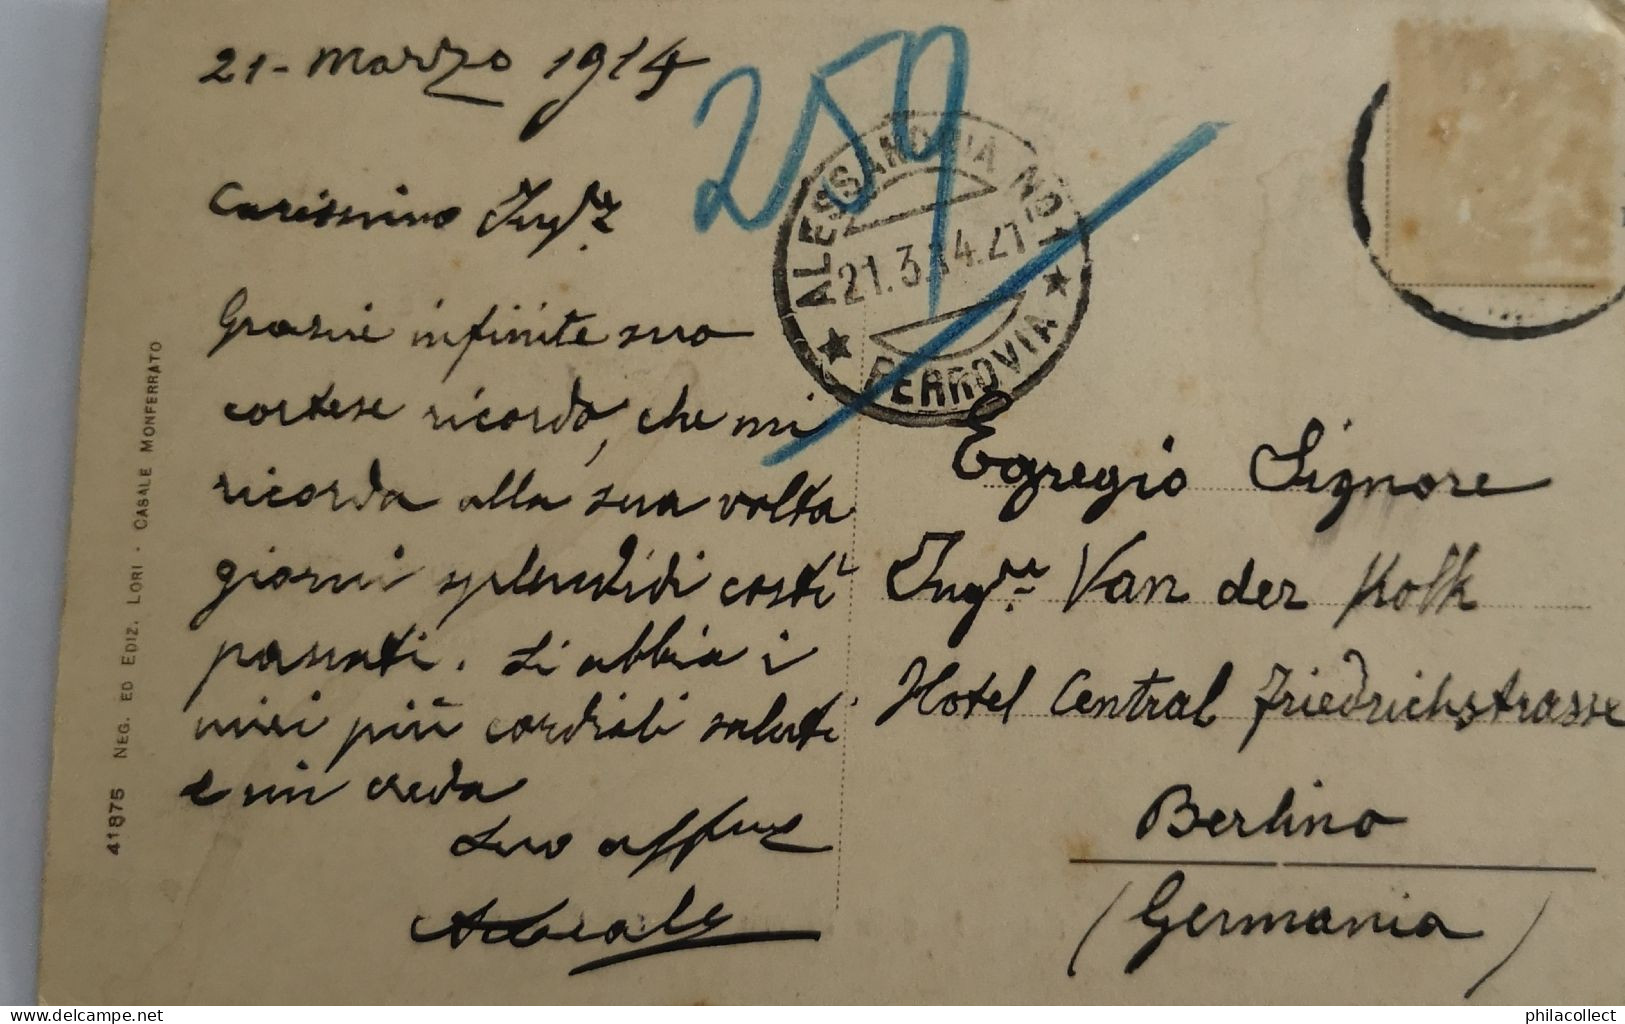 21 - Marzo 1914
Carissimo Ing.re
Grazie infinite suo
cortese ricordo, che mi
ricorda alla sua volta
giorni splendidi costì
passati. Si abbia i
miei più cordiali saluti
e mi creda
Suo affmo
259
ALESSANDRIA No 1
21.3.14.21
★ FERROVIA ★
Egregio Signore
Ing.re Van der Kolk
Hotel Central Friedrichstrasse
Berlino
(Germania)
41875 NEG. ED EDIZ. LORI - CASALE MONFERRATO
delcampe.net
philacollect